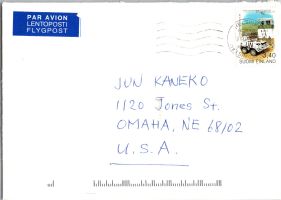 PAR AVION
LENTOPOSTI
FLYGPOST
1,40
SUOMI FINLAND
JUN KANEKO
1120 Jones St.
OMAHA, NE 68102
U.S.A.